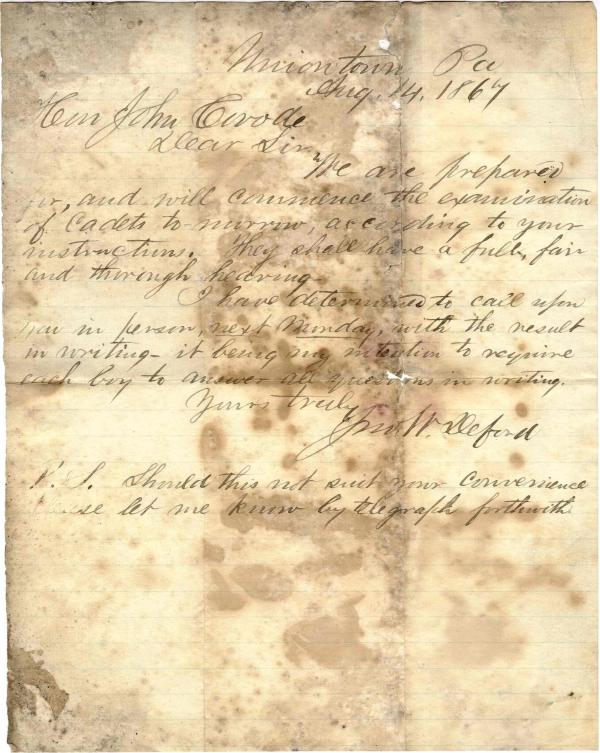 Uniontown Pa
Aug. 14, 1867
Hon John Covode
Dear Sir
We are prepared
for, and will commence the examination
of Cadets to-morrow, according to your
instructions. They shall have a full, fair
and thorough hearing—
I have determined to call upon
you in person, next Monday, with the result
in writing— it being my intention to require
each boy to answer all questions in writing.
Yours truly
Jno. W. Deford
P. S. Should this not suit your convenience
please let me know by telegraph forthwith